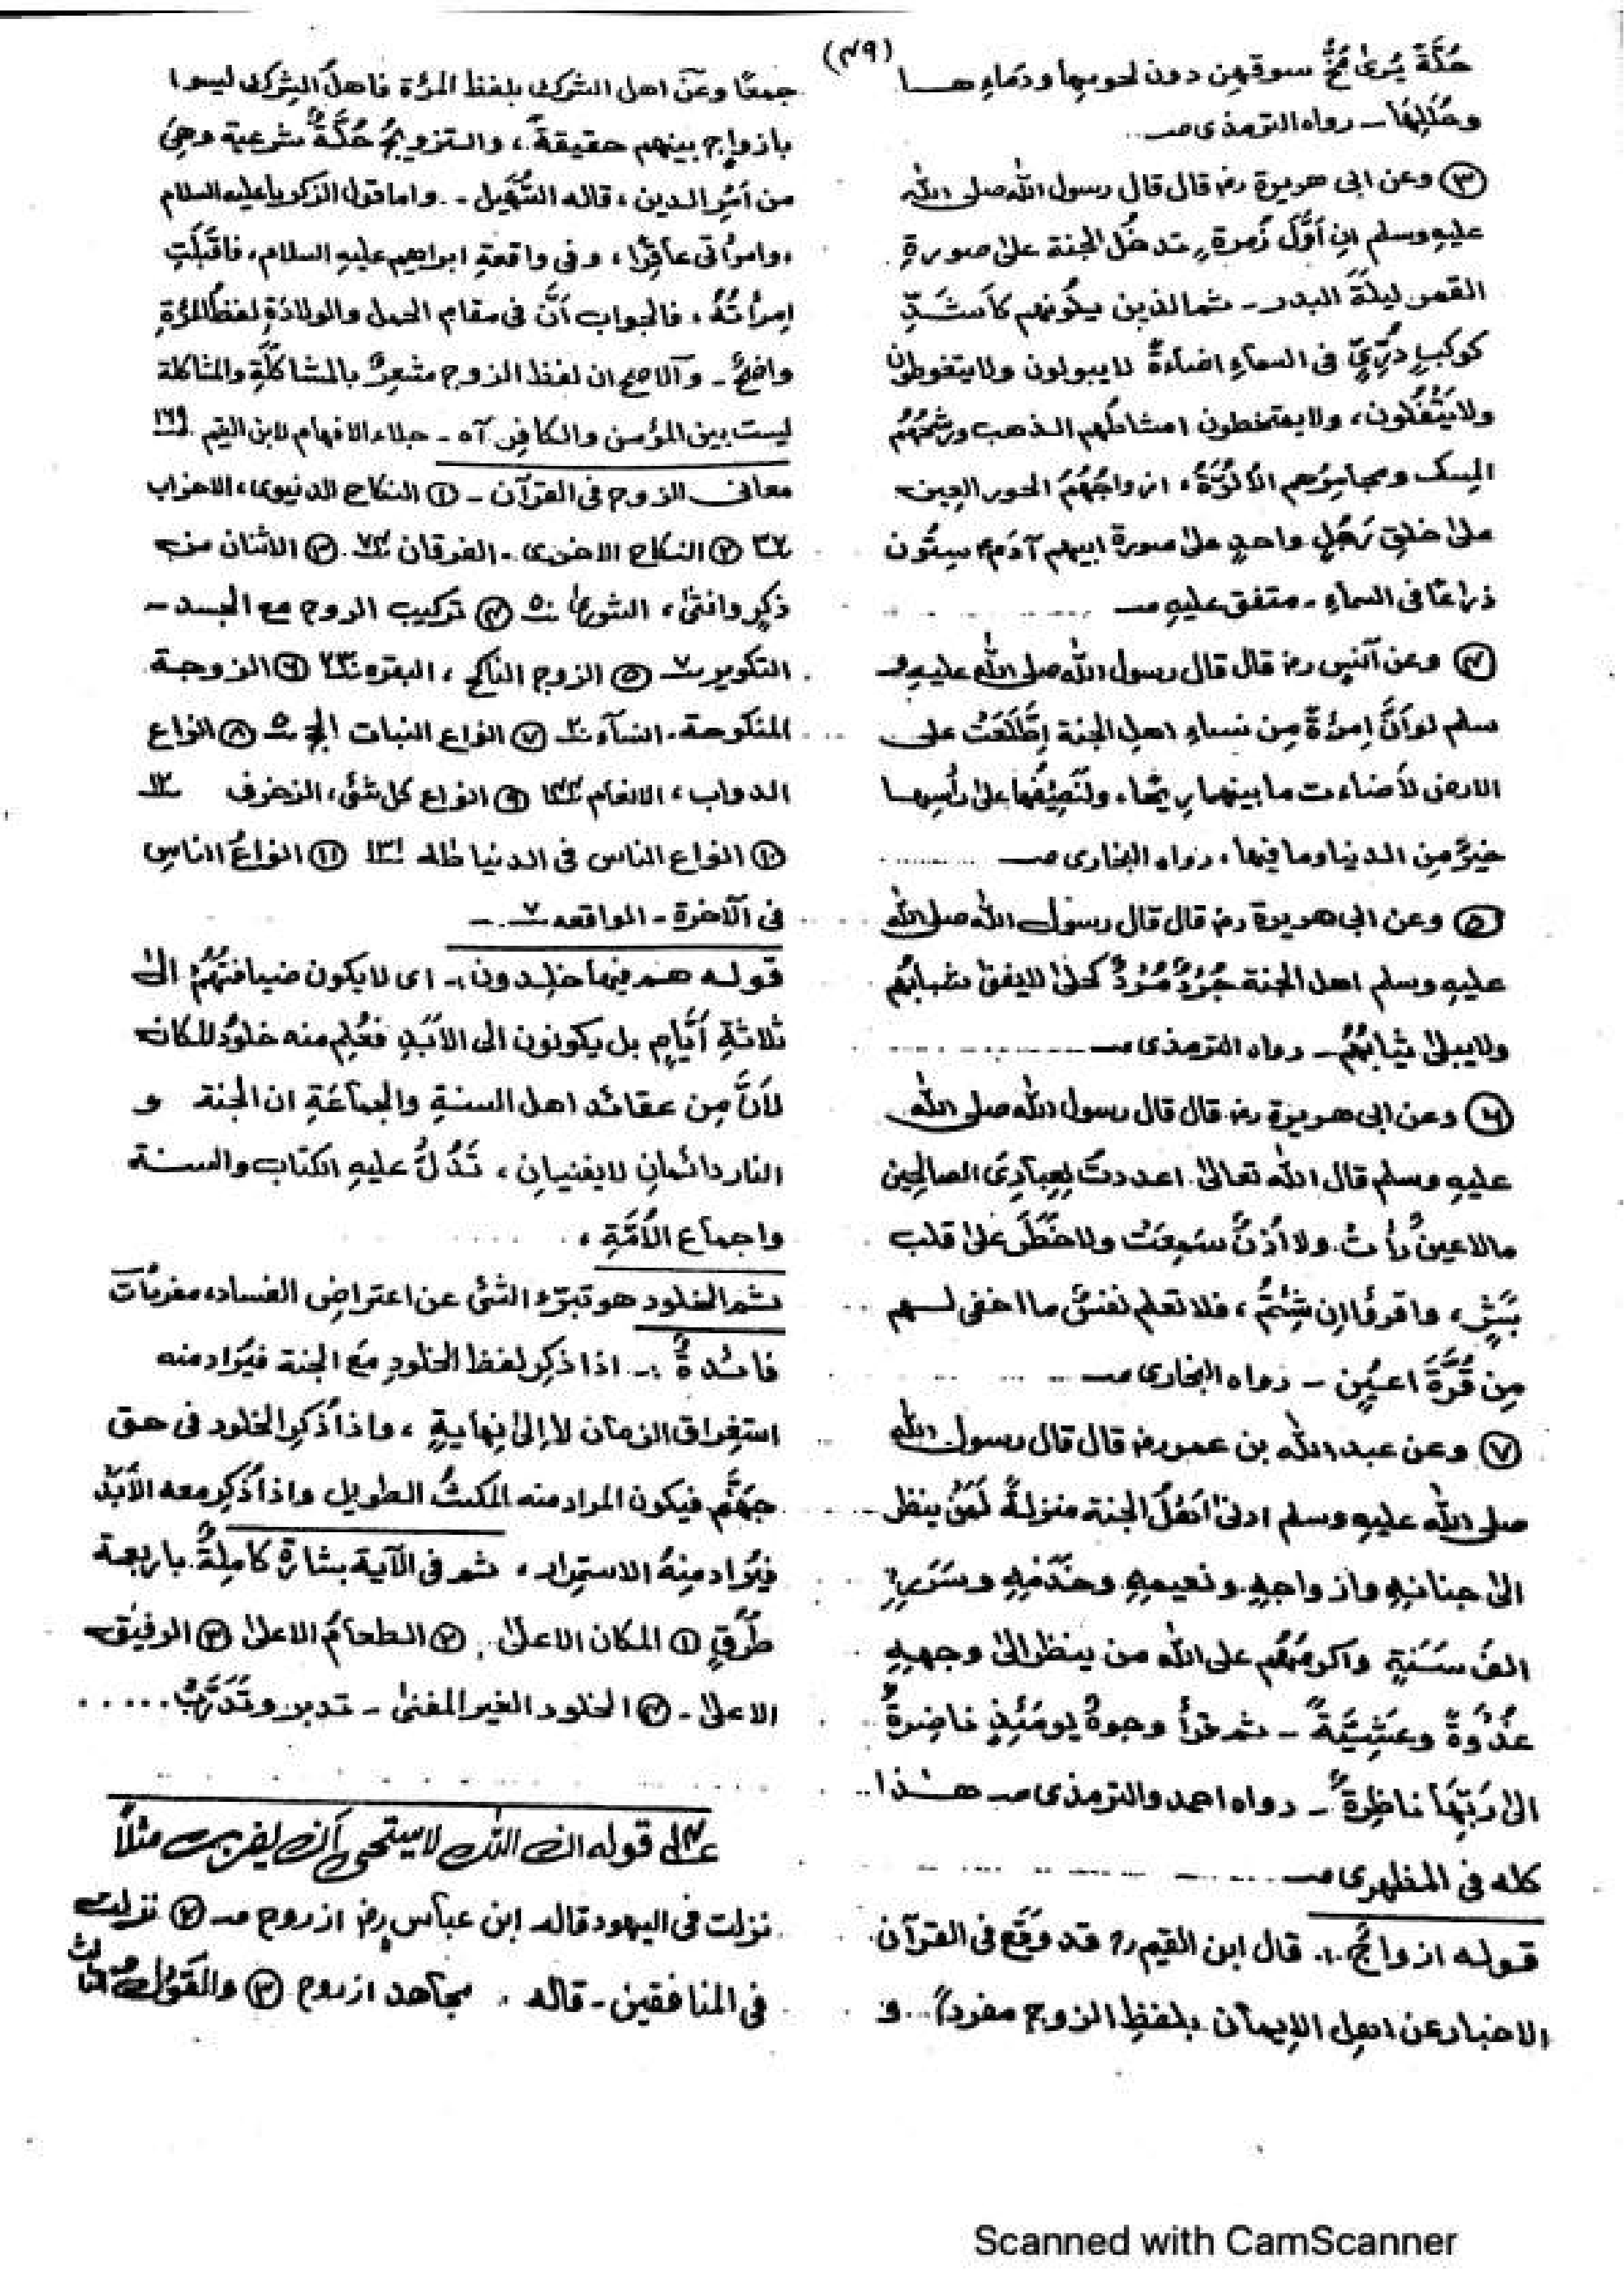 (٤٩)
حُلَّةً يُرىٰ مُخُّ سوقهن دون لحومها ودماءها
وحُلَلِهَا ـ رواه الترمذى صـ
③ وعن ابى هريرة رض قال قال رسول الله صلى الله
عليه وسلم ان اَوَّلَ زُمرةٍ تدخُل الجنة علىٰ صورةِ
القمر ليلةَ البدر ـ ثم الذين يلونهم كاَشَدِّ
كوكبٍ دُرِّيٍّ فى السماءِ اضاءةً لايبولون ولايتغوطون
ولايَتْفُلون، ولايمتخطون امشاطُهم الذهب ورشحُهُم
المِسك ومجامِرُهم الأَلُوَّةُ، ازواجُهُمُ الحور العين
علىٰ خلقِ رَجُلٍ واحدٍ علىٰ صورة ابيهم آدمؑ ستّون
ذراعًا فى السماءِ ـ متفق عليه صـ
④ وعن اَنسٍ رض قال قال رسول الله صلى الله عليه و
سلم لو اَنَّ اِمرُةً مِن نساءِ اهلِ الجنة اِطَّلَعَتْ على
الارض لأضاءت ما بينهما رِيحًا، ولنَصِيْفُها علىٰ رأسِها
خيرٌ مِن الدنيا وما فيها، رواه البخارى صـ
⑤ وعن ابى هريرة رض قال قال رسول الله صلى الله
عليهِ وسلم اهل الجنة جُرْدٌ مُرْدٌ كحلىٰ لايفنىٰ شبابُهُم
ولايبلىٰ ثيابُهُم ـ رواه الترمذى صـ
⑥ وعن ابى هريرة رض قال قال رسول الله صلى الله
عليهِ وسلم قال الله تعالىٰ اعددتُ لِعِبادِىَ الصالحِين
مالاعينٌ رأت ولا اُذنٌ سَمِعَتْ ولاخَطَرَ علىٰ قلب
بَشَرٍ، واقرؤا ان شِئتُم، فلا تعلم نفسٌ ما اخفى لهم
مِن قُرَّةِ اعيُنٍ ـ رواه البخارى صـ
⑦ وعن عبد الله بن عمر رض قال قال رسول الله
صلى الله عليه وسلم ادنىٰ اَهْلِ الجنة منزلةً لَمَنْ ينظر
الىٰ جنانهِ وازواجهِ ونعيمهِ وخَدَمِهِ وسَرَرِهٖ
الفَ سَنَةٍ واكرمُهُم على الله من ينظر الىٰ وجههِ
غُدْوَةً وعَشِيَّةً ـ ثم قرأ وجوهٌ يومَئِذٍ ناضِرةٌ
الىٰ رَبِّهَا ناظِرةٌ ـ رواه احمد والترمذى صـ هٰذا
كله فى المظهرى صـ
قوله ازواجٌ :ـ قال ابن القيم رح قد وَقَع فى القرآن
الاخبار عن اهل الايمان بلفظِ الزوج مفردًا و
جمعًا وعَنْ اهل الشرك بلفظ المرُة فاهل الشِرك ليسوا
بازواجٍ بينهم حقيقةً، والتزويجُ حُلَّةٌ شرعية وهِىَ
من اَمرِ الدين، قاله السُّهَيل ـ واما قول الزكريا عليه السلام
وامرُاتى عاقرًا، وفى واقعةِ ابراهيم عليه السلام، فاقبَلَتِ
اِمرأتُهُ، فالجواب اَنَّ فى مقام الحمل والولادَةِ لفظُ المرُةِ
واضحٌ ـ وآلاصح ان لفظ الزوج مشعِرٌ بالمشاكلةِ والمشاكلة
ليست بين المؤمن والكافِر آه ـ جلاء الافهام لابن القيم ١٦٩
معانى الزوج فى القرآن ـ ① النكاح الدنيوى، الاحزاب
٣٧ ② النكاح الاخروى ـ الفرقان ٧٤ ③ الاثنان من
ذكرٍ وانثىٰ، الشورىٰ ٥٠ ④ تركيب الروح مع الجسد ـ
التكوير ٧ ⑤ الزوج الناكح، البقره ٢٣٠ ⑥ الزوجة
المنكوحة ـ النسآء ⑦ انواع النبات الحج ٥ ⑧ انواع
الدواب، الانعام ١٤٣ ⑨ انواع كل شئ، الزخرف ١٢
⑩ انواع الناس فى الدنيا طٰه ١٣١ ⑪ انواعُ الناسِ
فى الآخرة ـ الواقعه ٧ ـ
قوله هم فيها خٰلدون :ـ اى لايكون ضيافتهُمُ الىٰ
ثلاثةِ اَيَّامٍ بل يكونون الى الاَبَدِ فعُلِم منه خلودُ المكان
لأنَّ مِن عقائد اهل السنةِ والجماعَةِ ان الجنة و
النار دائمانِ لايفنيانِ، تَدُلُّ عليهِ الكتاب والسنة
واجماع الاُمَّةِ،
ثم الخلود هو تبرّء الشئ عن اعتراضِ الفساد، مفردات
فائدةٌ :ـ اذا ذكِر لفظ الخلودِ مَعَ الجنة فيُراد منه
استغراق الزمان لا اِلىٰ نهايةٍ، واذا ذُكِر الخلود فى حق
جهَنَّم فيكون المراد منه المكثُ الطويل واذا ذُكِر معه الأبَدُ
فيُراد مِنهُ الاستمرار، ثم فى الآية بشارةٌ كاملةٌ باربعة
طُرُقٍ ① المكان الاعلىٰ، ② الطعامُ الاعلىٰ ③ الرفيق
الاعلىٰ ـ ④ الخلود الغير المفنىٰ ـ تدبر وتَدَرَّبْ . . . . .
قوله ان الله لا يستحى اَن يضرب مثلاً
نزلت فى اليهود قاله ابن عباس رض از روح صـ ② نزلت
فى المنافقين ـ قاله مجاهد از روح ③ والقول الثالث
Scanned with CamScanner